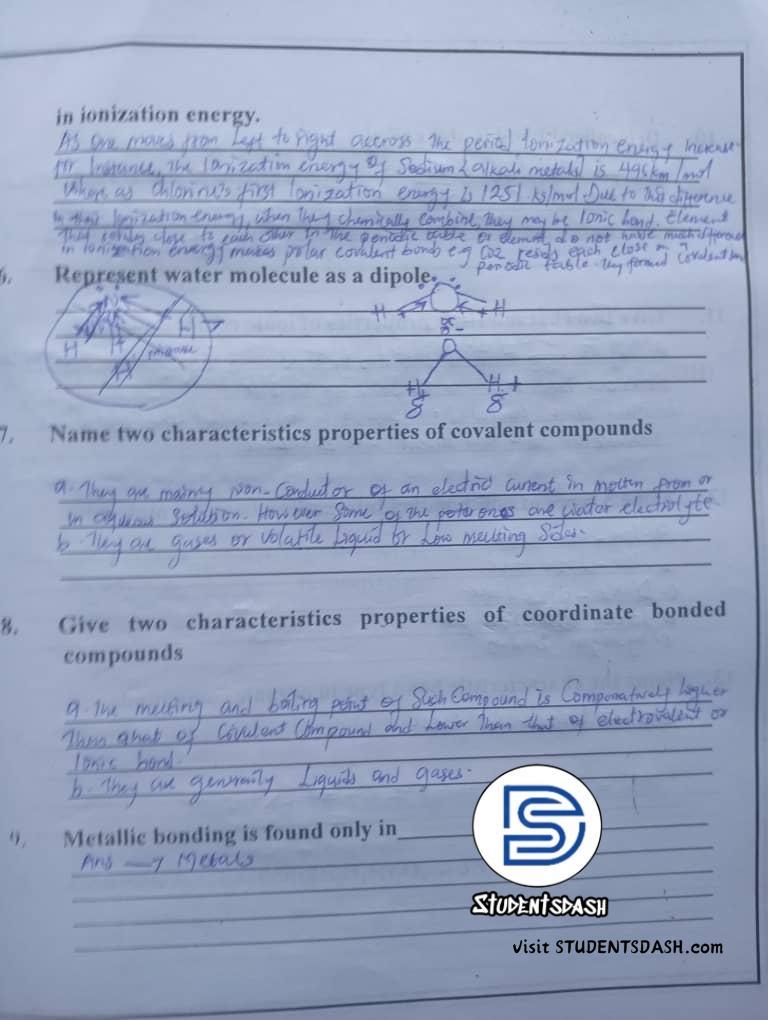 in ionization energy.
As one moves from Left to right accross the period Ionization energy Increase
for Instance, the Ionization energy of Sodium (alkali metals) is 495 /mol
Where as Chlorine's first Ionization energy is 1251 KJ/mol Due to this difference
in their Ionization energy, when they chemically combine, they may be Ionic bond. Element
that close to each other in the periodic table or element do not have much difference
in Ionization energy makes polar covalent bonds e.g CO2 each close in
periodic table they formed Covalent
6. Represent water molecule as a dipole.
H H
H H
H H +
8 8
7. Name two characteristics properties of covalent compounds
a. They are mainly Non-Conductor of an electric Current in molten from or
in aqueous Solution. However Some of the are electrolyte
b. They are gases or volatile Liquid or Low melting
8. Give two characteristics properties of coordinate bonded
compounds
a. The melting and boiling point of Such Compound is Comparatively higher
Than that of Covalent Compound and Lower Than that of electrovalent or
Ionic bond.
b. They are generally Liquids and gases.
9. Metallic bonding is found only in
Ans → Metals
DS
STUDENTSDASH
Visit STUDENTSDASH.com